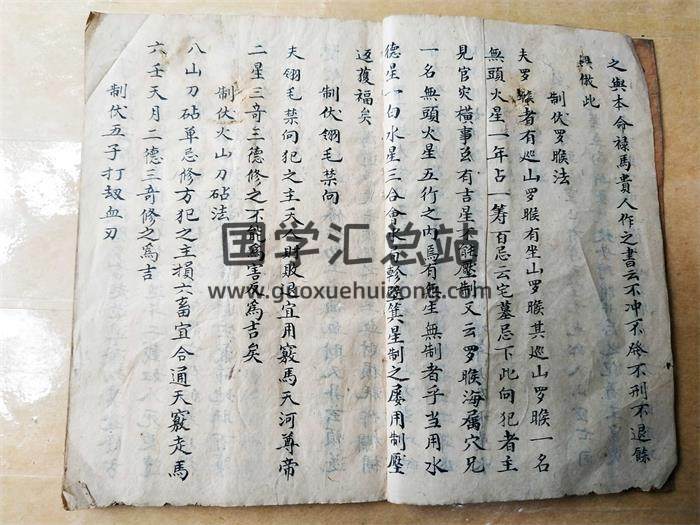 之與本命禄馬貴人作之書云不冲不發不刑不退餘
無倣此
制伏罗睺法
夫罗睺者有巡山罗睺有坐山罗睺其巡山罗睺一名
無頭火星一年占一筹百忌云宅墓忌下此向犯者主
見官灾橫事立有吉星不能壓制又云罗睺海属穴兄
一名無頭火星五行之内焉有無生無制者子当用水
德星一白水星三合會水軫箕星制之屡用制壓
返獲福矣
制伏翎毛禁向
夫翎毛禁向犯之主天人財敗退宜用竅馬天河尊帝
二星三奇三德修之不能為害反為吉矣
制伏火山刀砧法
八山刀砧单忌修方犯之主損六畜宜合通天竅走馬
六壬天月二德三奇修之為吉
制伏五子打劫血刃
国学汇总站
www.guoxuehuizong.com